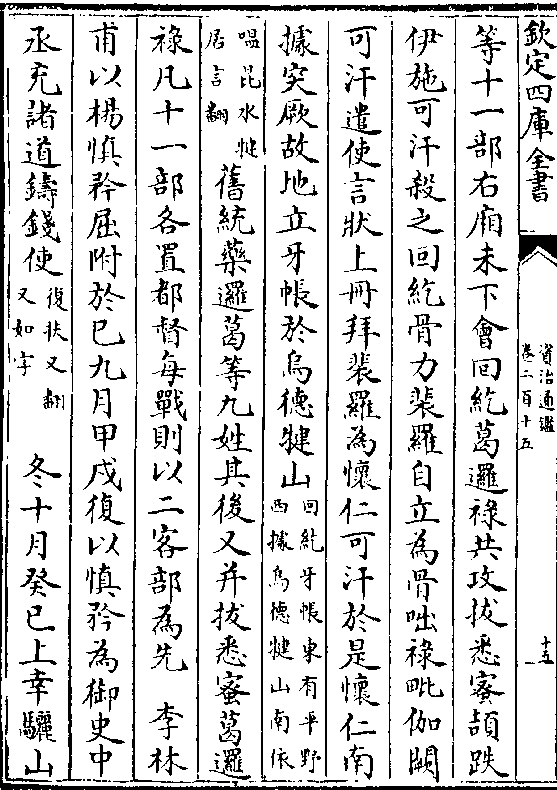 欽定四庫全書
資治通鑑
卷二百十五
十五
等十一部右廂未下會回紇葛邏祿共攻拔悉蜜頡跌
伊施可汗殺之回紇骨力裴羅自立為骨咄祿毗伽闕
可汗遣使言狀上冊拜裴羅為懷仁可汗於是懷仁南
據突厥故地立牙帳於烏德犍山回紇牙帳東有平野
西據烏德犍山南依
嗢昆水犍
居言翻舊統藥邏葛等九姓其後又并拔悉蜜葛邏
祿凡十一部各置都督每戰則以二客部為先 李林
甫以楊慎矜屈附於已九月甲戌復以慎矜為御史中
丞充諸道鑄錢使復扶又翻
又如字 冬十月癸巳上幸驪山